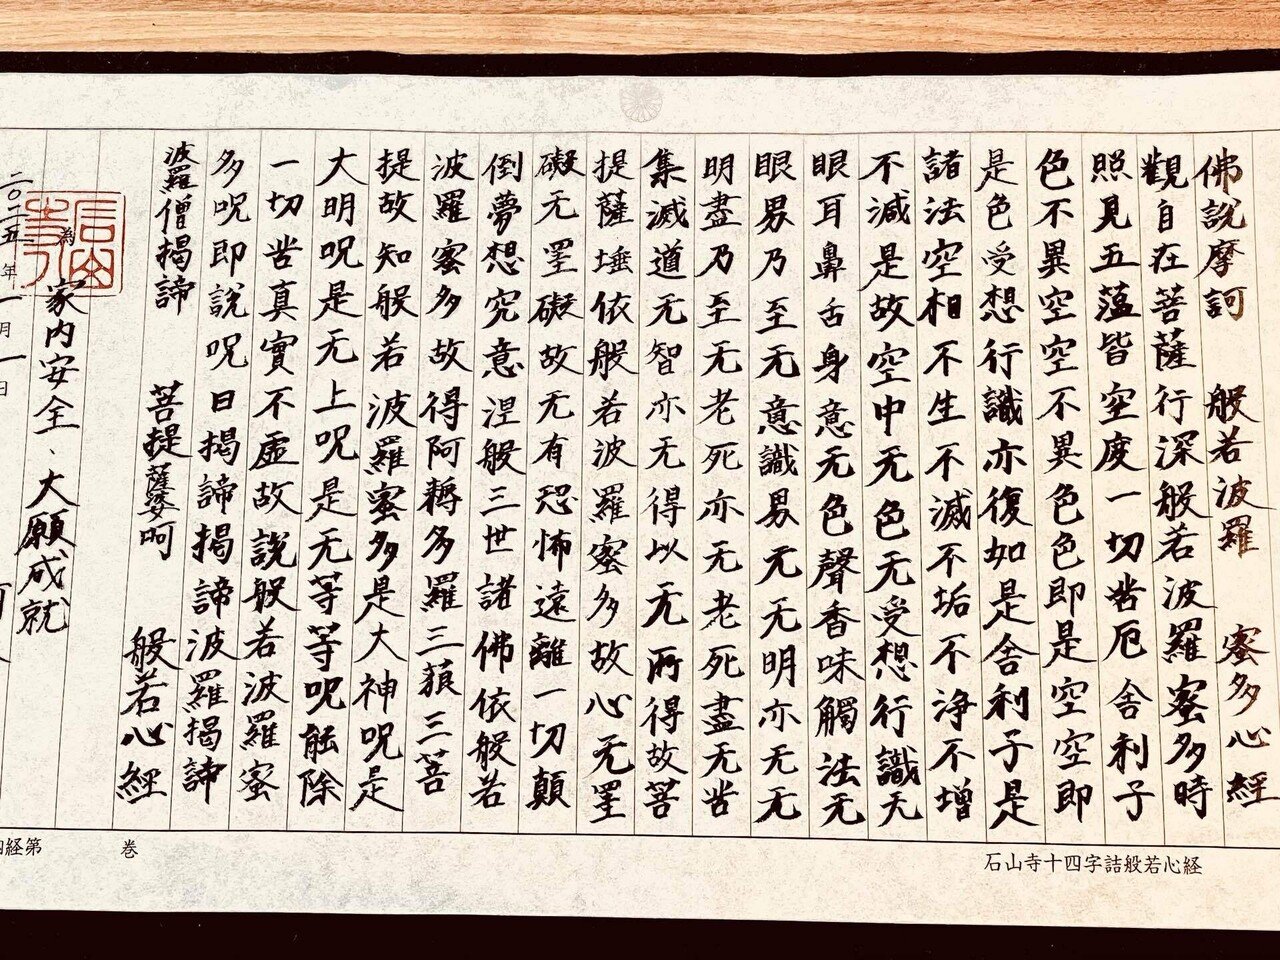 佛說摩訶 般若波羅 蜜多心經
觀自在菩薩行深般若波羅蜜多時
照見五蘊皆空度一切苦厄舍利子
色不異空空不異色色即是空空即
是色受想行識亦復如是舍利子是
諸法空相不生不滅不垢不淨不增
不減是故空中无色无受想行識无
眼耳鼻舌身意无色聲香味觸法无
眼界乃至无意識界无无明亦无无
明盡乃至无老死亦无老死盡无苦
集滅道无智亦无得以无所得故菩
提薩埵依般若波羅蜜多故心无罣
礙无罣礙故无有恐怖遠離一切顛
倒夢想究竟涅般三世諸佛依般若
波羅蜜多故得阿耨多羅三藐三菩
提故知般若波羅蜜多是大神呪是
大明呪是无上呪是无等等呪能除
一切苦真實不虛故說般若波羅蜜
多呪即說呪曰揭諦揭諦波羅揭諦
波羅僧揭諦 菩提薩婆呵 般若心經
為 家内安全、大願成就
二〇二五年一月一日
石山寺十四字詰般若心経
経第 巻